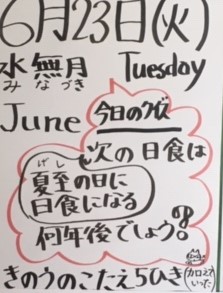 6月23日(火)
水無月 Tuesday
みなづき
June 今日のクイズ
次の日食は
げし
夏至の日に
日食になる
何年後でしょう?
きのうのこたえ5ひき
(カロえて
いった)